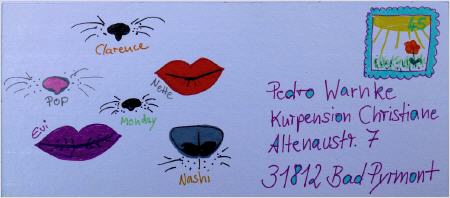 Clarence
Nette
POP
Monday
Evi
Nashi
45
Pedro Warnke
Kurpension Christiane
Altenaustr. 7
31812 Bad Pyrmont